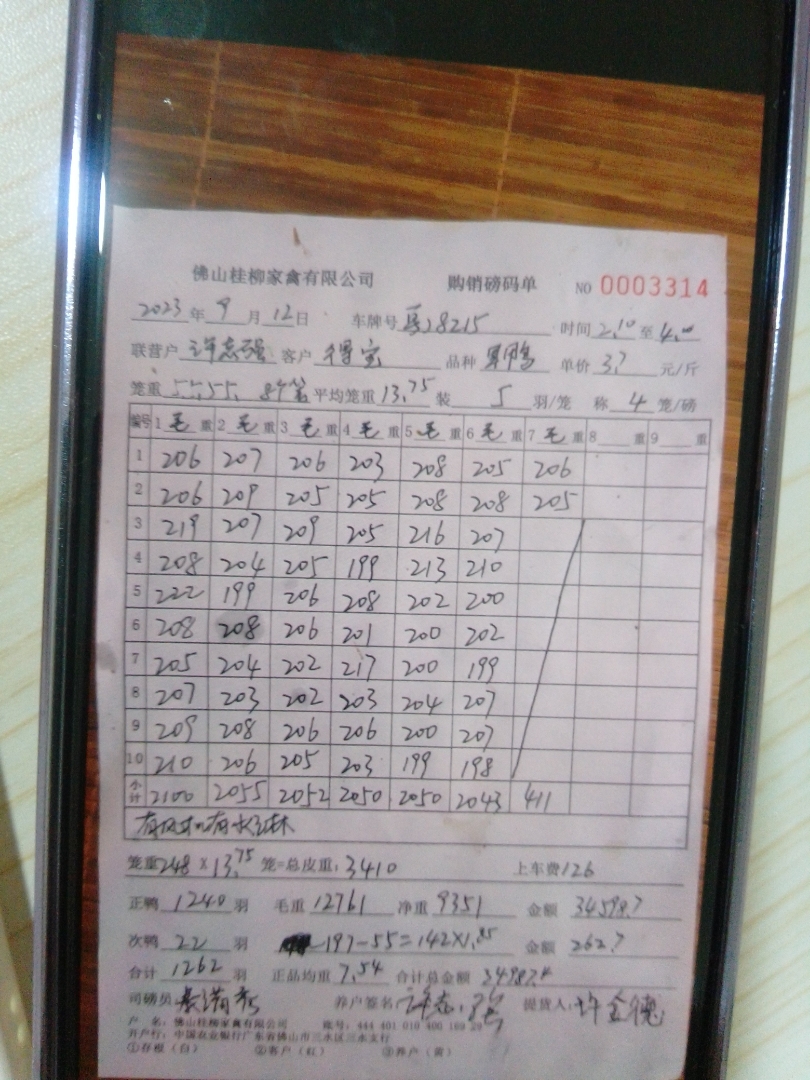 佛山桂柳家禽有限公司 购销磅码单 NO 0003314
2023年9月12日 车牌号 28215 时间2.10至4.00
联营户 许志强 客户 得宝 品种 鸭 单价 3.7 元/斤
笼重 55.55. 平均笼重13.75装 5 羽/笼 称 4 笼/磅
编号 1毛重 2毛重 3毛重 4毛重 5毛重 6毛重 7毛重 8 重 9 重
1 206 207 206 203 208 205 206
2 206 209 205 205 208 208 205
3 219 207 209 205 216 207
4 208 204 205 199 213 210
5 222 199 206 208 202 200
6 208 208 206 201 200 202
7 205 204 202 217 200 199
8 207 203 202 203 204 207
9 209 208 206 206 200 207
10 210 206 205 203 199 198
小计 2100 2055 2052 2050 2050 2043 411
笼重248×13.75笼=总皮重:3410 上车费126
正鸭 1240 羽 毛重12761 净重9351 金额 34598.7
次鸭 22 羽 197-55=142×1.85 金额 262.7
合计 1262 羽 正品均重 7.54 合计总金额
司磅员 养户签名 许志强 提货人: 许金德
户 名: 佛山桂柳家禽有限公司 账号: 444 401 010 400 169 28
开户行: 中国农业银行广东省佛山市三水区三水支行
①存根(白) ②客户(红) ③养户(黄)